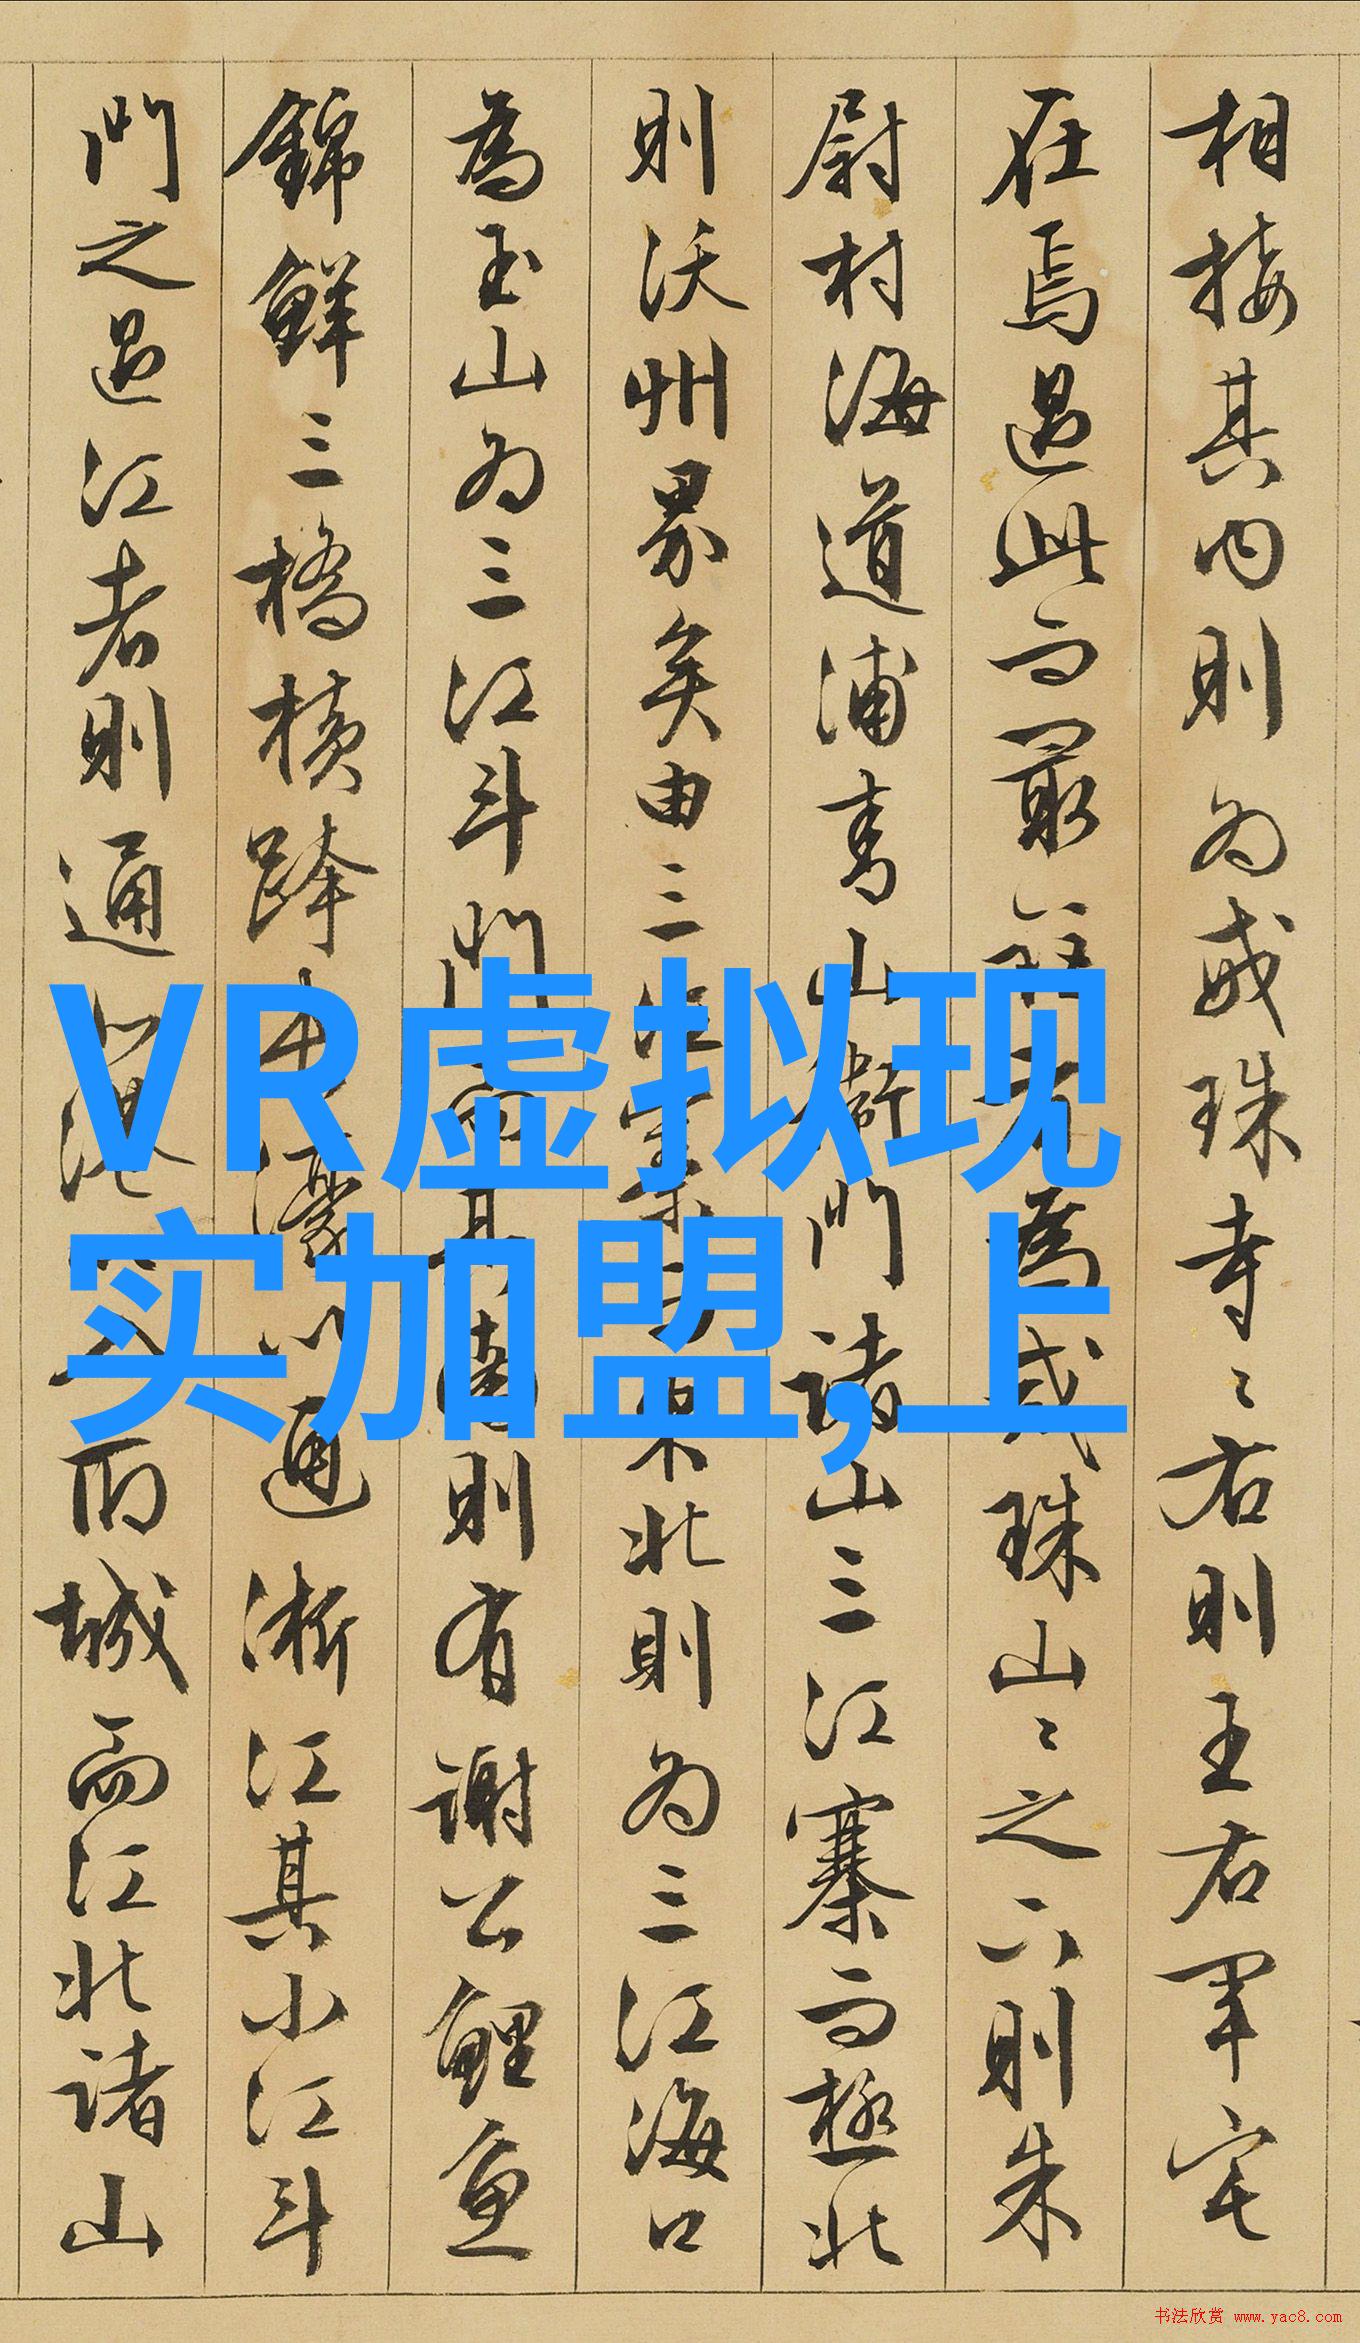 相接其内則为戒珠寺〻右則王右軍宅
在焉過此而最爲戒珠山〻之六則朱
尉村海道浦青山衛門諸山三江寨而極北
則沃州界矣由三江東北則为三江海口
為玉山为三江斗門南則有謝公鯉魚
錦鮮三橋橫跨濠以通淅江其小江斗
門之過江者則通而城而江北諸山
VR虚拟现
实加盟,上
书法欣赏 www.yac8.com